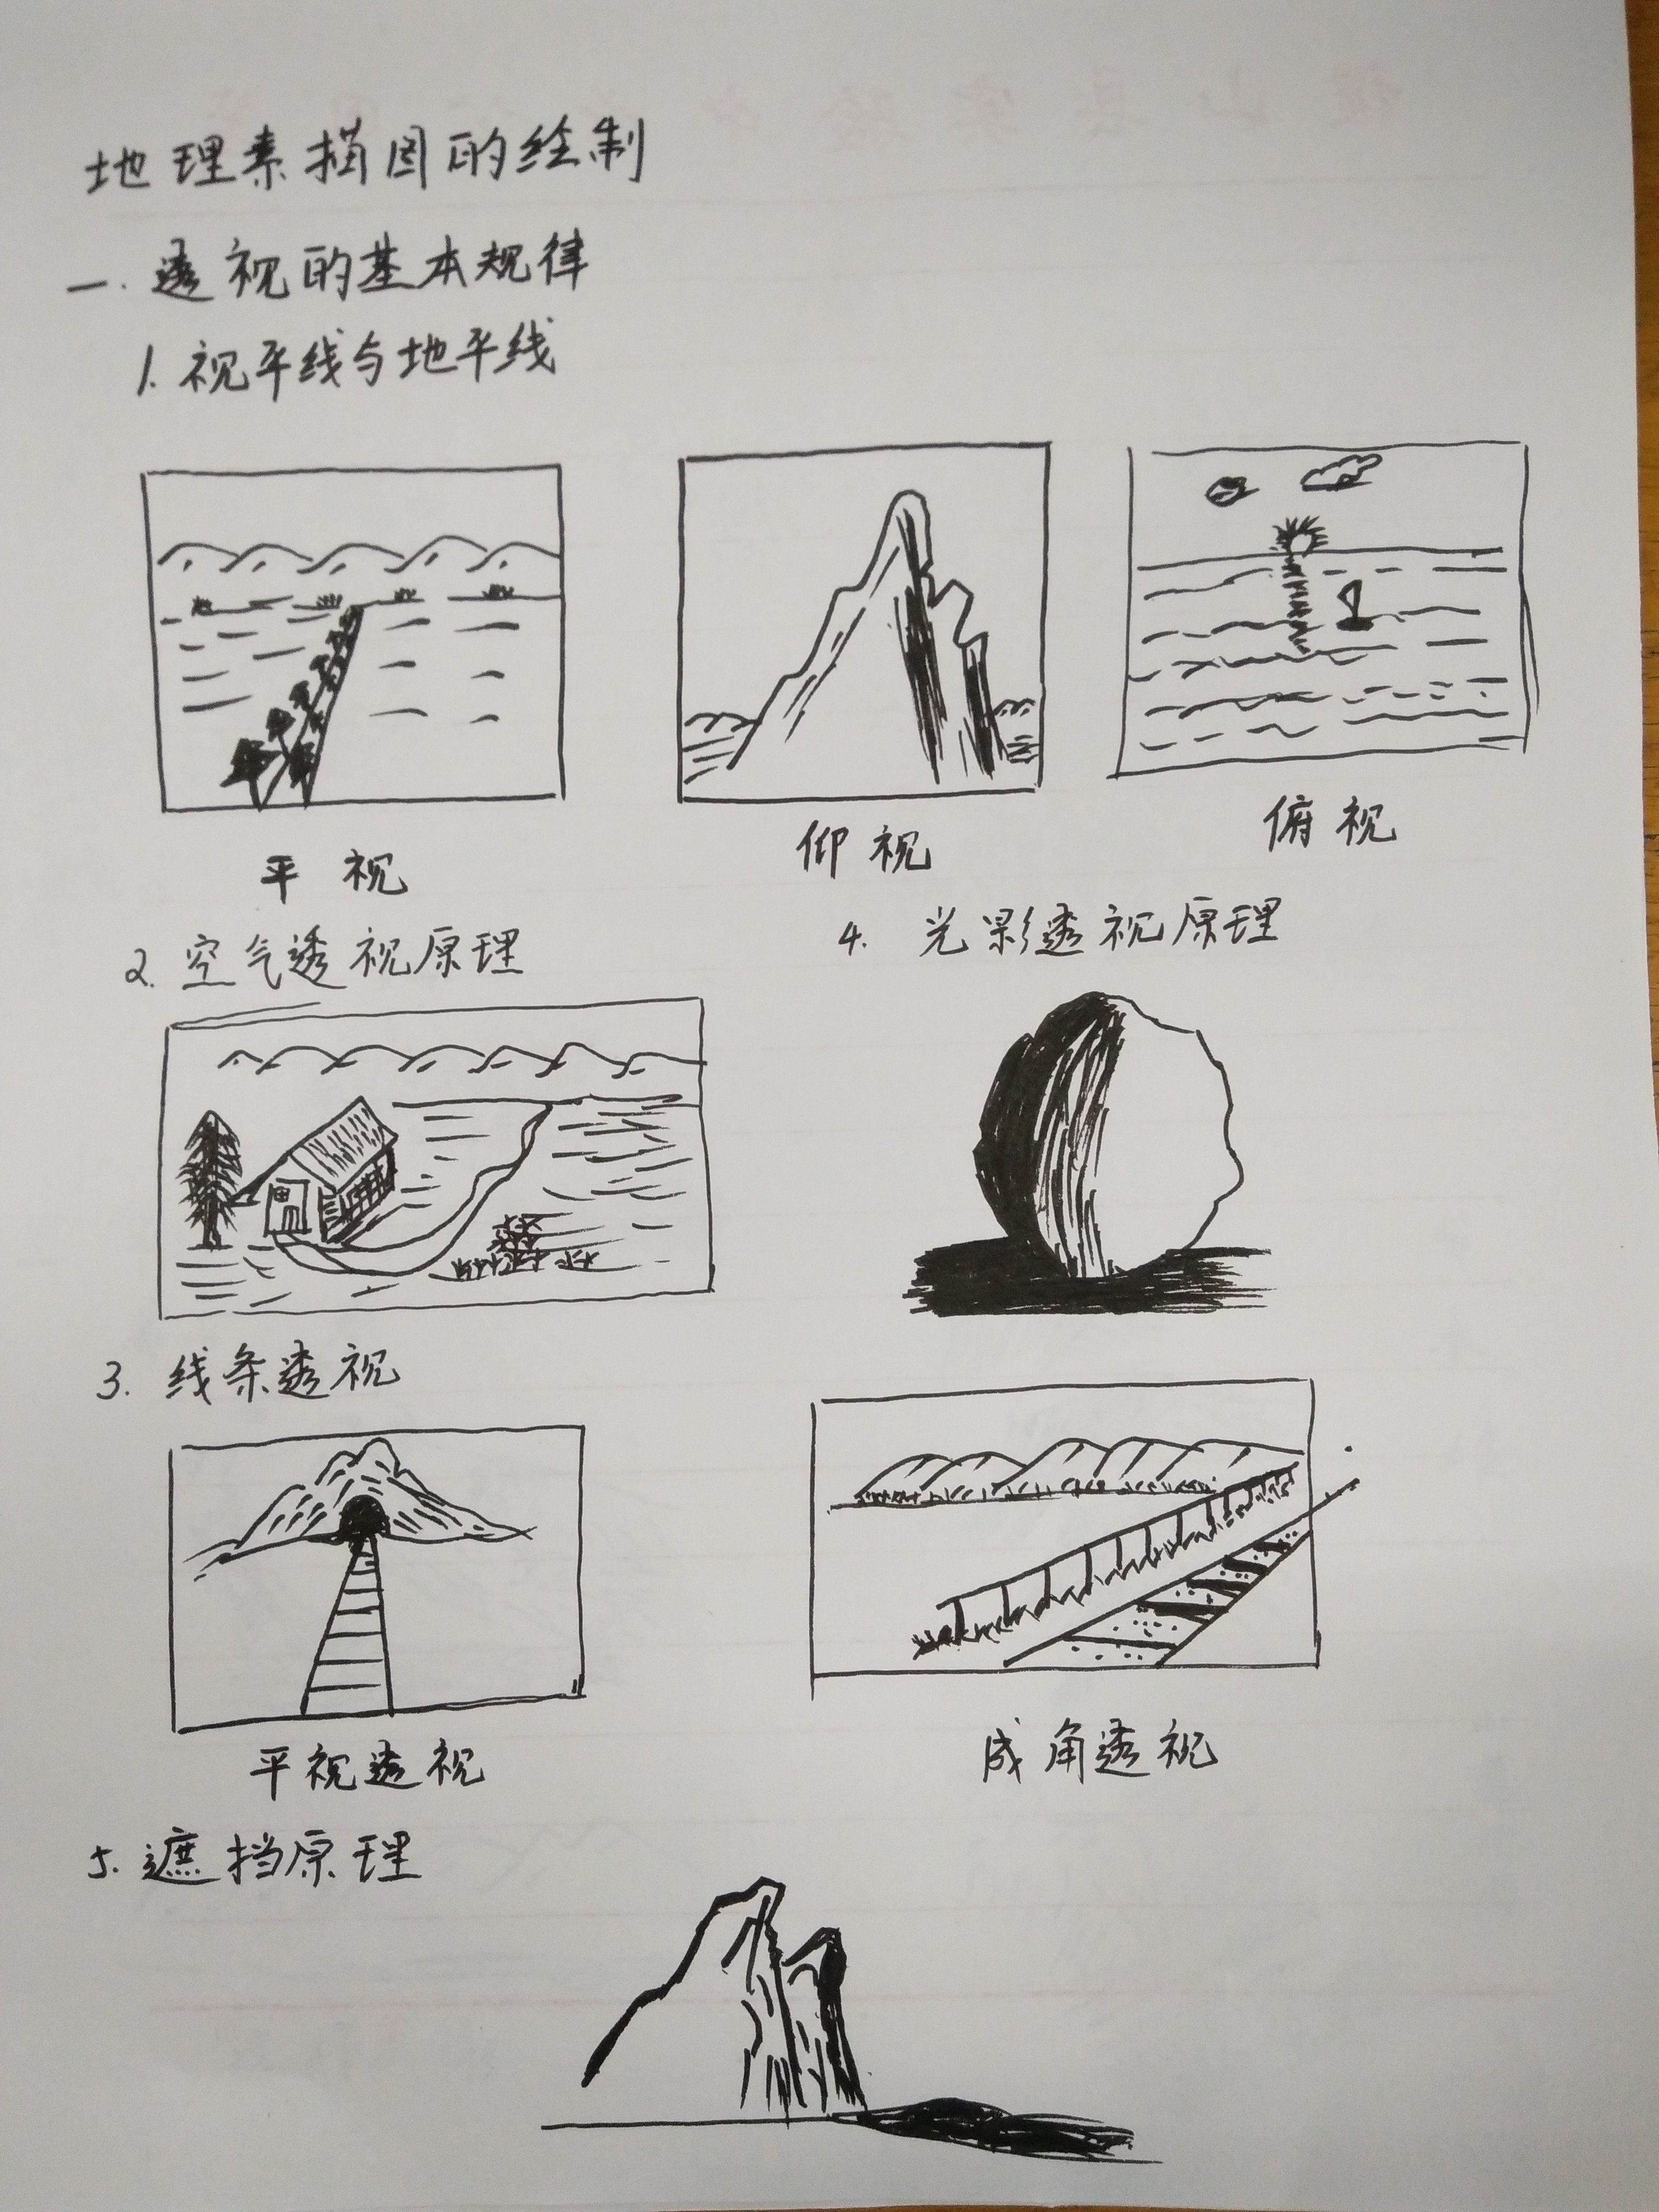 地理素描图的绘制
一.透视的基本规律
1.视平线与地平线
平视
仰视
俯视
2.空气透视原理
4.光影透视原理
3.线条透视
平视透视
成角透视
5.遮挡原理